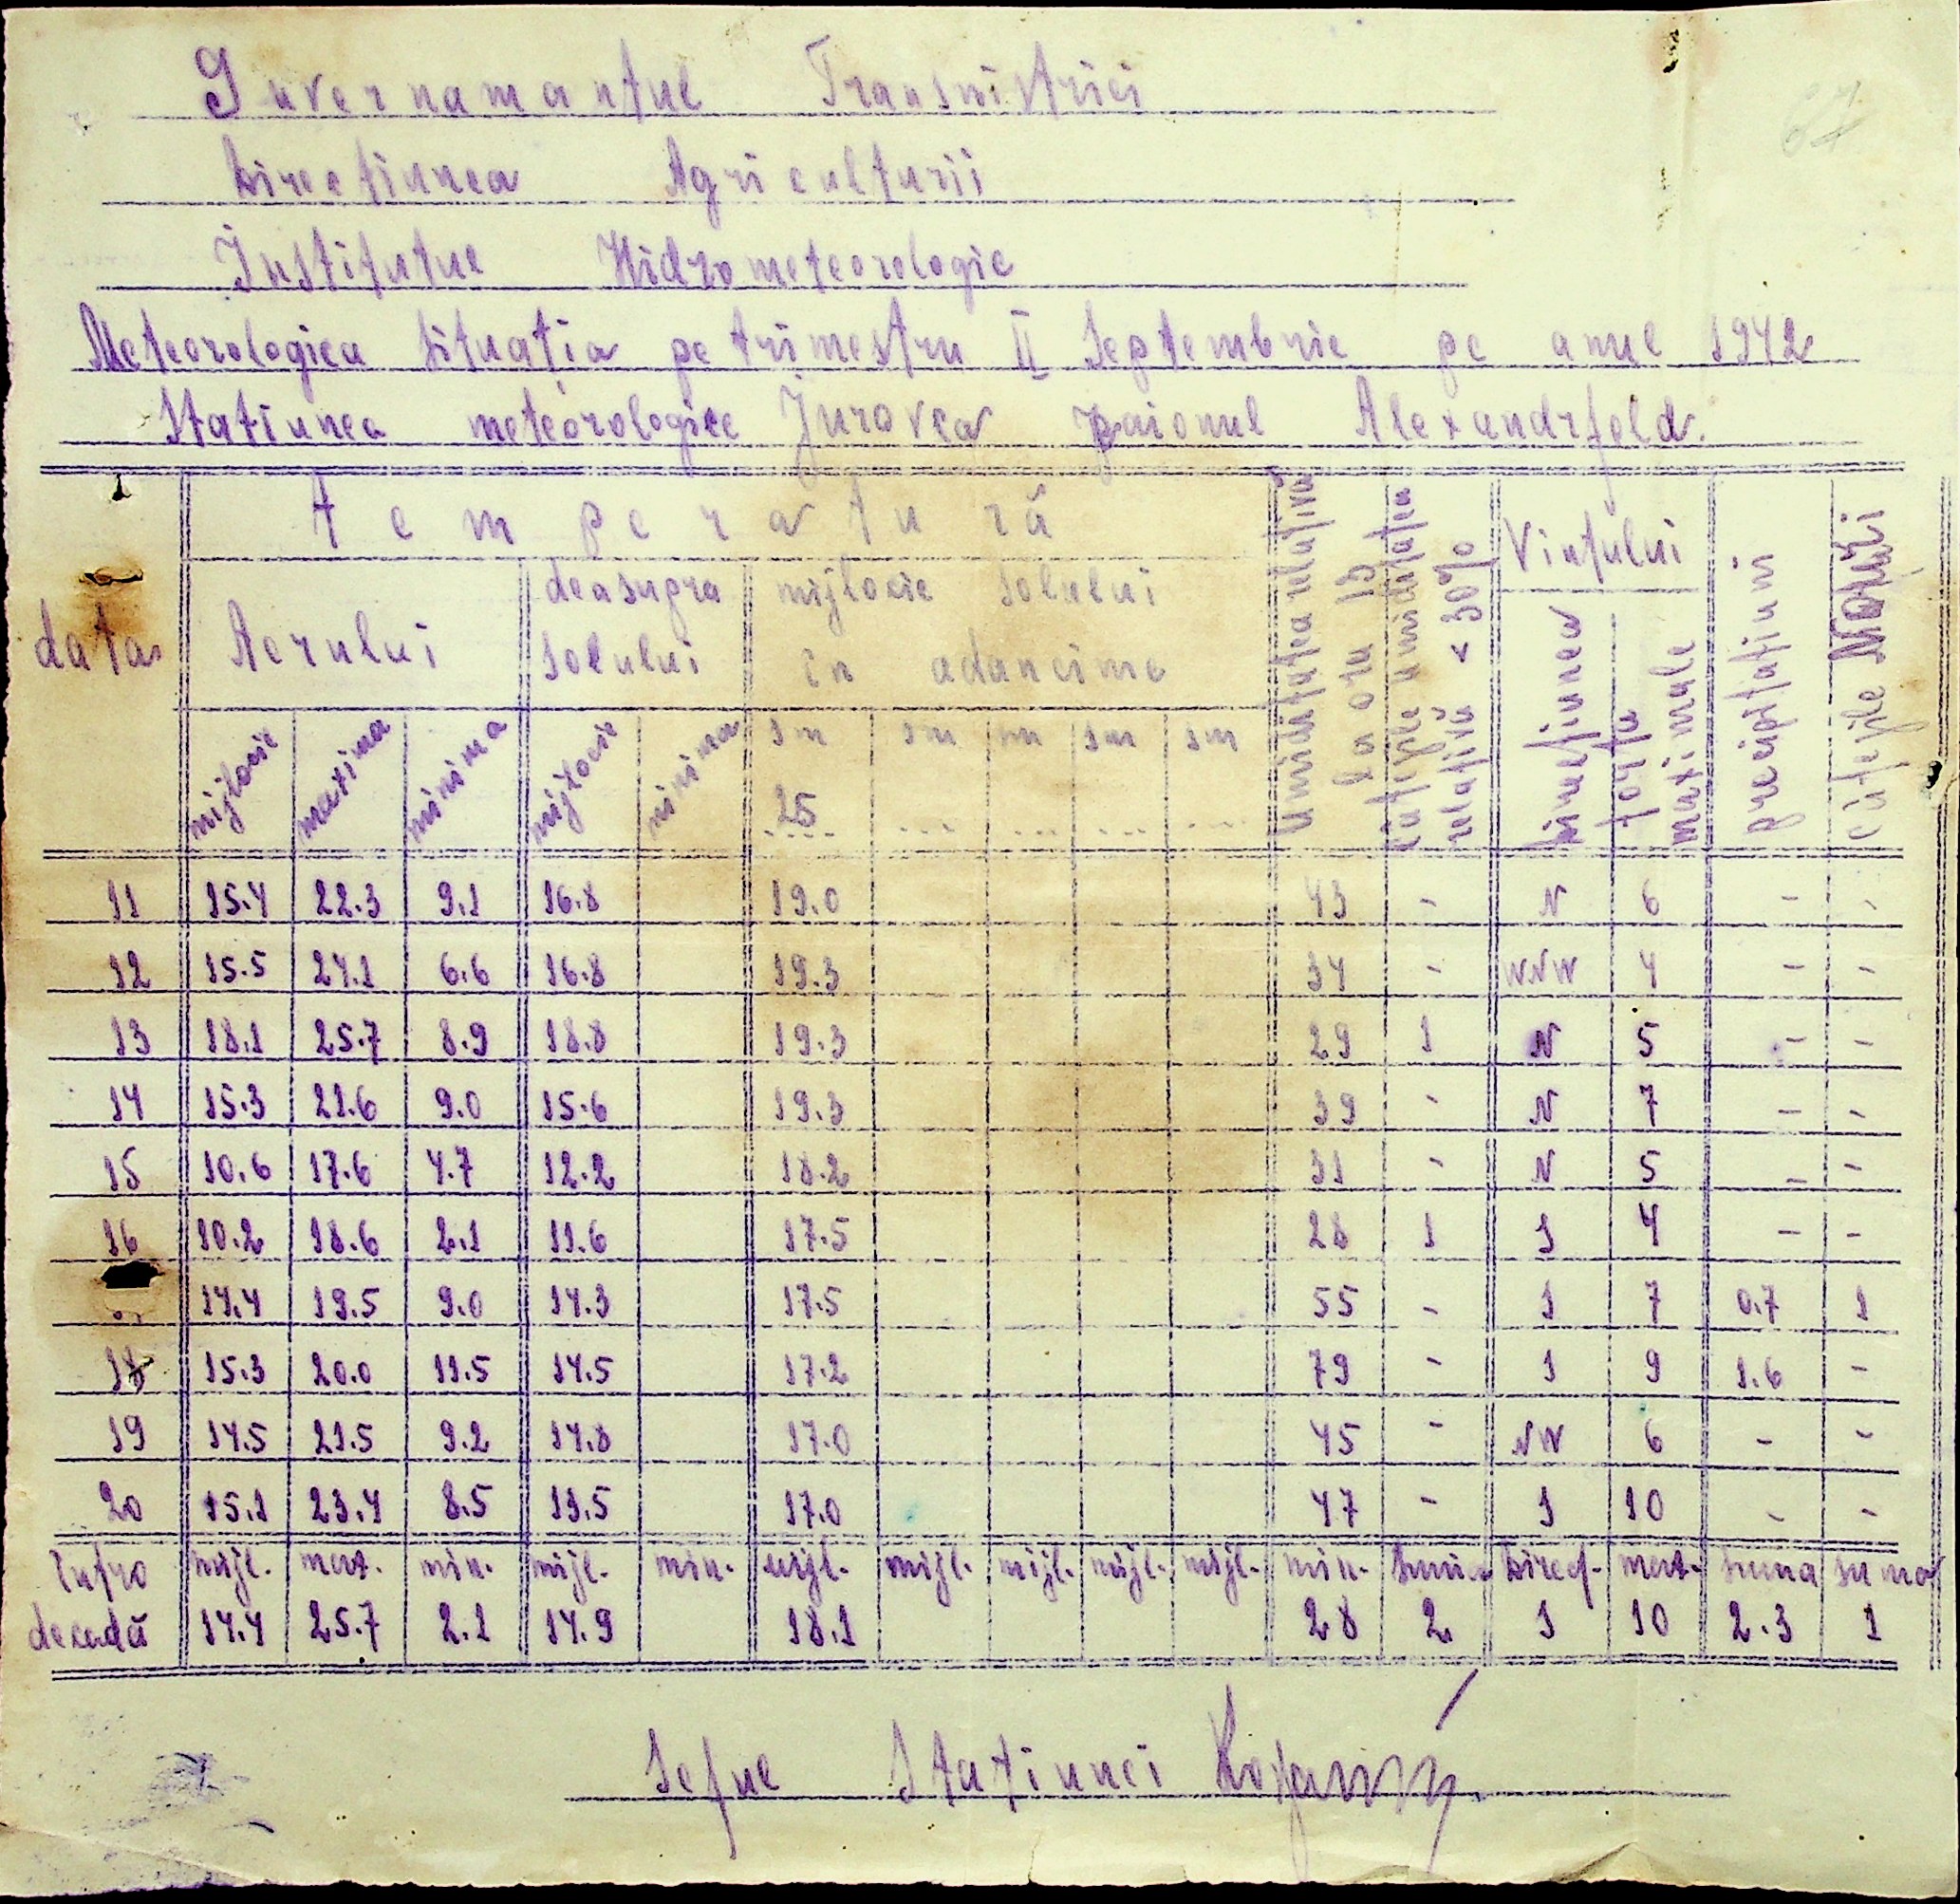 Guvernamantul Transnistriei
Directiunea Agriculturii
Institutul Hidrometeorologic
Meteorologica situația pe trimestru II Septembrie pe anul 1942
Statiunea meteorologice Jurovca raionul Alexandrfeld.
data temperatură Umiditatea relativa la ora 13 Cîtățile umiditatea relativă < 30% Vintului Precipitatiuni Cîtățile
Aerului deasupra solului mijlocie solului in adancime Directiunea forța maximale
mijlocie maxima minima mijlocie minima sm 25 sm sm sm sm
11 15.4 22.3 9.1 16.8 19.0 43 - N 6 - -
12 15.5 24.1 6.6 16.8 19.3 34 - WNW 4 - -
13 18.1 25.7 8.9 18.8 19.3 29 1 N 5 - -
14 15.3 21.6 9.0 15.6 19.3 39 - N 7 - -
15 10.6 17.6 4.7 12.2 18.2 31 - N 5 - -
16 10.2 18.6 2.1 11.6 17.5 28 1 S 4 - -
14.4 19.5 9.0 14.3 17.5 55 - S 7 0.7 1
18 15.3 20.0 11.5 14.5 17.2 79 - S 9 1.6 -
19 14.5 21.5 9.2 14.8 17.0 45 - NW 6 - -
20 15.1 23.4 8.5 13.5 17.0 47 - S 10 - -
Intro mijl. max. min. mijl. min. mijl. mijl. mijl. mijl. mijl. min. suma direct. max. suma suma
decadă 14.4 25.7 2.1 14.9 18.1 28 2 S 10 2.3 1
Seful Stațiunei